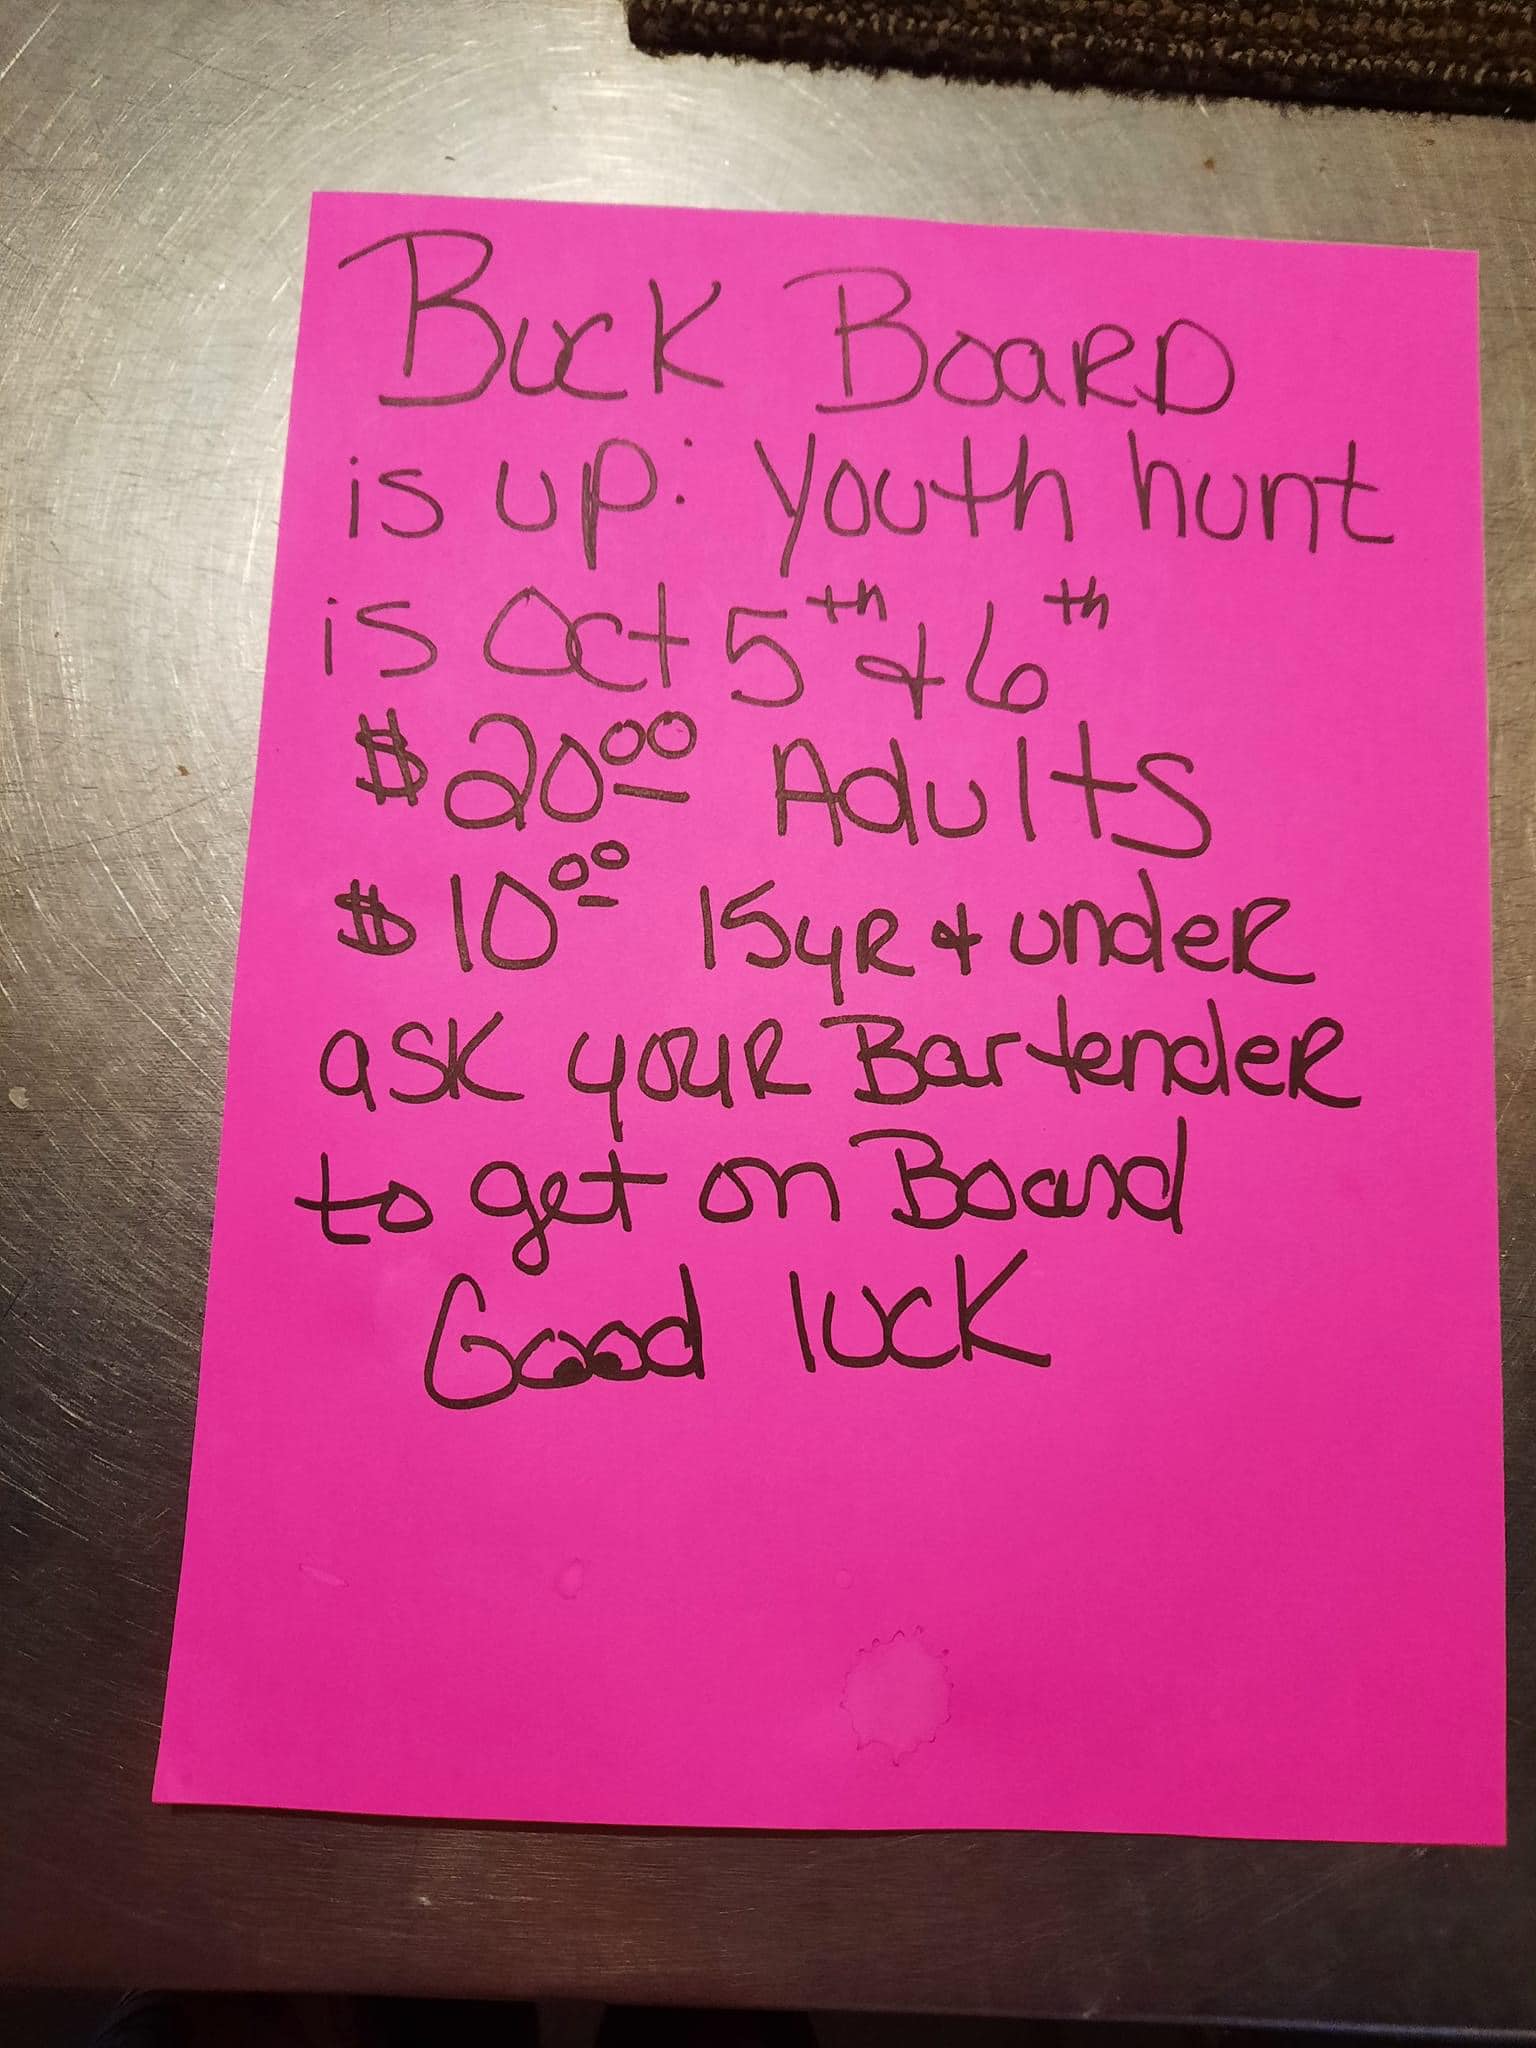 Buck Board
is up: youth hunt
is Oct 5th & 6th
$20.00 Adults
$10.00 15yR & under
ask your Bartender
to get on Board
Good luck